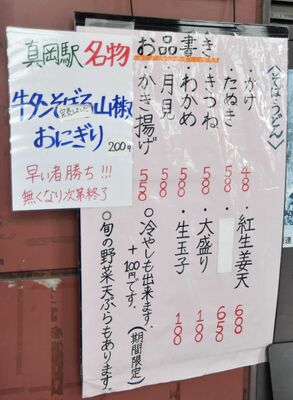 真岡駅 名物
牛タンそぼろ山椒
おにぎり 200円
早い者勝ち!!!
無くなり次第終了
お品書き
〈そば・うどん〉
・かけ
・たぬき
・きつね
・わかめ
・月見
・かき揚げ
・紅生姜天
・大盛り 100
・生玉子 100
○冷やしも出来ます。
+100円です。(期間限定)
○旬の野菜天ぷらもあります。